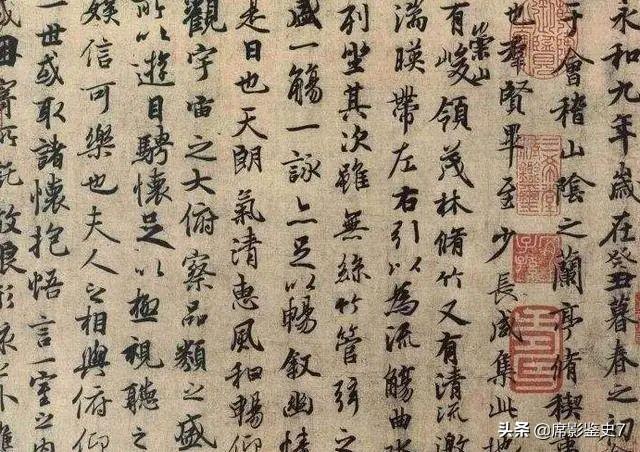 永和九年歲在癸丑暮春之初
于會稽山陰之蘭亭脩稧事
也羣賢畢至少長咸集此地
有崇山峻領茂林脩竹又有清流激
湍暎帶左右引以為流觴曲水
列坐其次雖無絲竹管弦之
盛一觴一詠亦足以暢敘幽情
是日也天朗氣清惠風和暢仰
觀宇宙之大俯察品類之盛
所以遊目騁懷足以極視聽之
娛信可樂也夫人之相與俯仰
一世或取諸懷抱悟言一室之內
或因寄所託放浪形骸之外雖
头条 @席影鉴史7